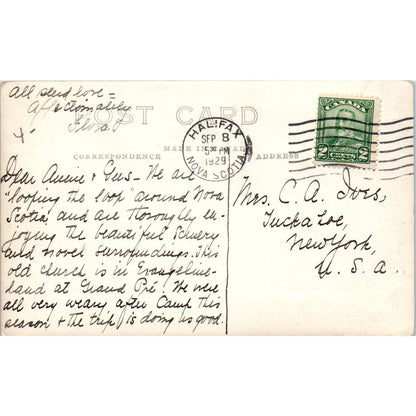 All send love =
Affectionately
Flora
POST CARD
MADE IN CANADA
CORRESPONDENCE
ADDRESS
HALIFAX
SEP 8
5 PM
1929
NOVA SCOTIA
CANADA
2 CENTS 2
Dear Annie & Gus - We are
"looping the loop" around Nova
Scotia and are thoroughly en-
joying the beautiful scenery
and novel surroundings. This
old church is in Evangeline-
land at Grand Pré. We were
all very weary after Camp this
season & the trip is doing us good.
Mrs. C. A. Ives,
Tuckahoe,
New York,
U. S. A.